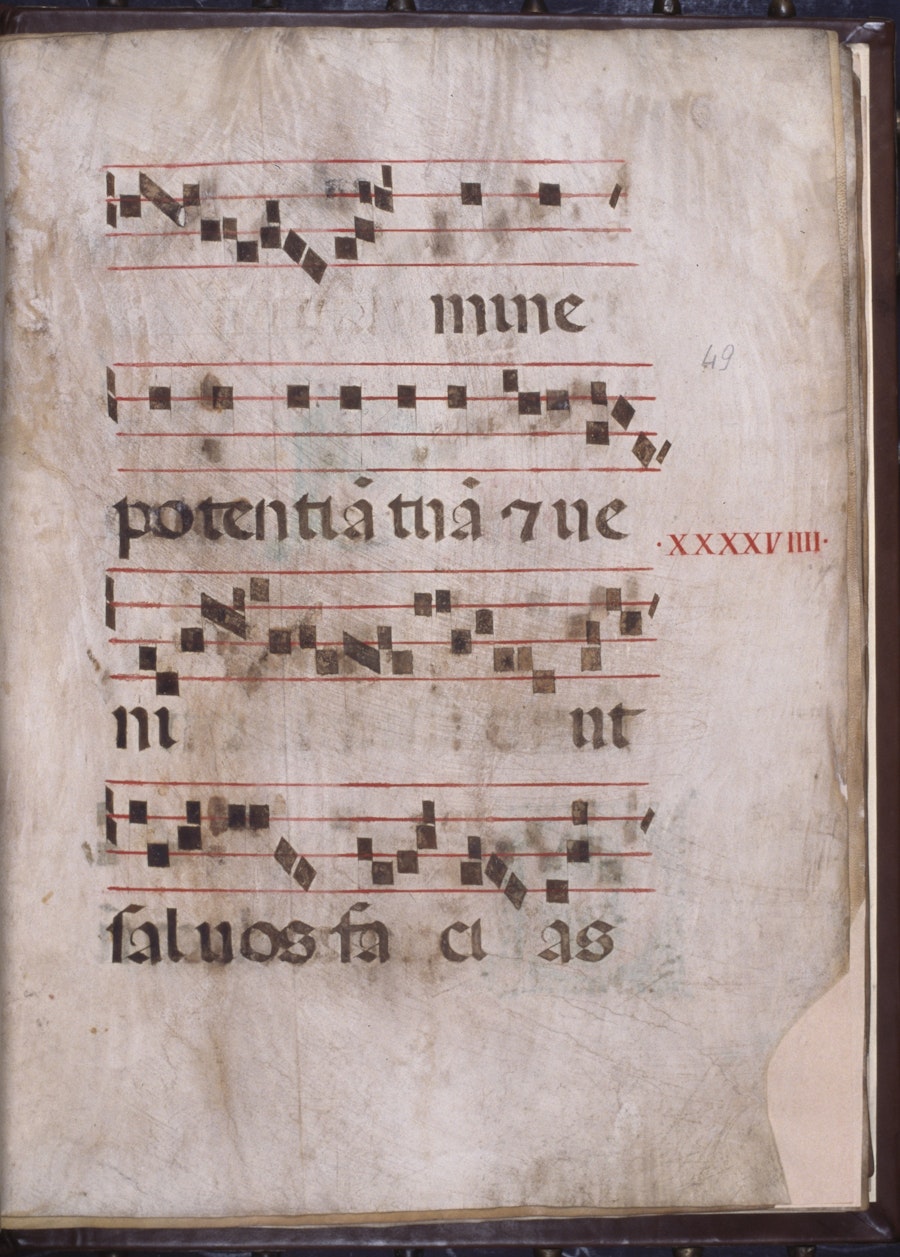 mine
49
potentiā tuā ⁊ ue
·XXXXVIIII·
ni nt
saluos fa ci as